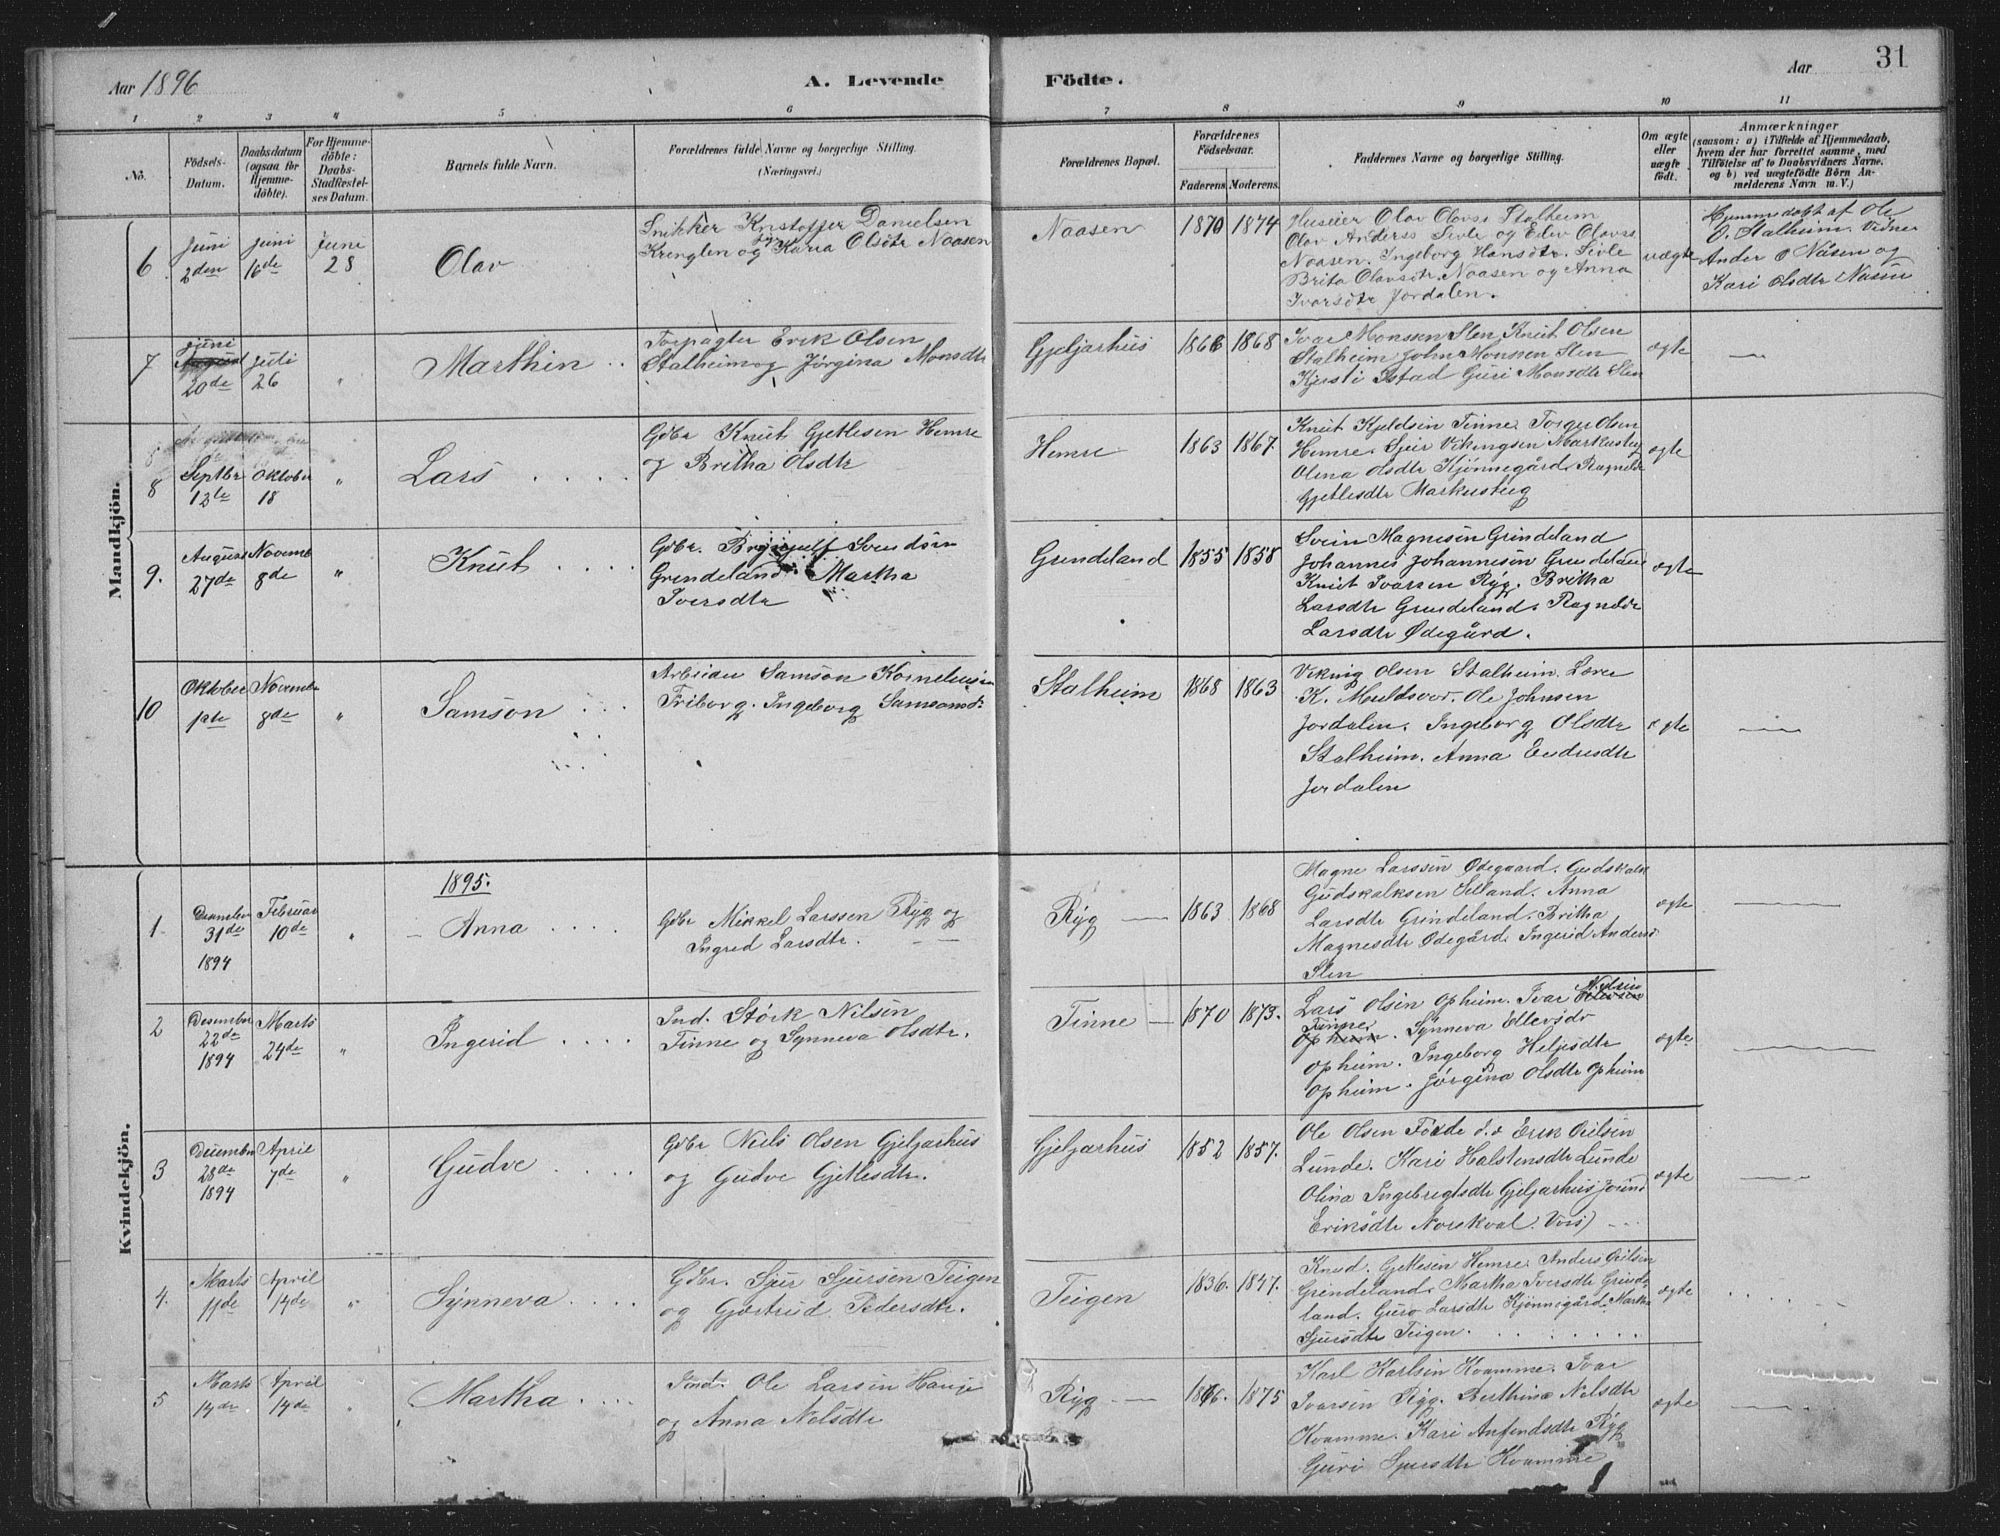 Aar 1896
A. Levende
Födte.
Aar
31
1
2
3
4
5
6
7
8
9
10
11
No.
Födsels-
Datum.
Daabsdatum
(ogsaa for
Hjemme-
döbte).
For Hjemme-
döbte:
Daabs-
Stadfæstel-
ses Datum.
Barnets fulde Navn.
Forældrenes fulde Navne og borgerlige Stilling.
(Næringsvei.)
Forældrenes Bopæl.
Forældrenes
Födselsaar.
Faderens.
Moderens.
Faddernes Navne og borgerlige Stilling.
Om ægte
eller
uægte
födt.
Anmærkninger
(saasom: a) i Tilfælde af Hjemmedaab,
hvem der har forrettet samme, med
Tilföielse af to Daabsvidners Navne.
og b) ved uægtefödte Börn An-
melderens Navn m. V.)
Mandkjön.
6
Juni
2den
Juni
16de
June
28
Olav
Snikker Kristoffer Danielsen
Krenglen og Kària Olsdtr Naasen
Naasen
1870
1874
Huseier Olav Olavss Stalheim
Olav Anderss Sivle og Edev Olavss
Naasen. Ingeborg Hansdtr. Sivle
Brita Olavsdtr. Naasen og Anna
Ivarsdtr Jordalen.
uægte
Hjemmedøbt af Ole
O. Stalheim. Vidner
Ander O Näsen og
Kari Olsdtr Näsen
7
Juni
20de
Juli
26
"
Marthin
Forpagter Erik Olsen
Stalheim og Jørgina Monsdtr
Gjeljarhus
1866
1868
Ivar Monssen Slen Knut Olsen
Stalheim John Monssen Slen
Kjersti Slstad Guri Monsdtr Slen
ægte
8
Septbr
13te
Oktober
18
"
Lars
Gdbr Knut Gjetlesen Hemre
og Britha Olsdtr
Hemre
1863
1867
Knut Kjeldsen Tinne Torger Olsen
Hemre. Sjur Vikingsen Markusteg
Olina Olsdtr Kjønnegård. Ragnilde
Gjetlesdtr Markusteg
ægte
9.
August
27de
Novemb
8de
"
Knut
Gdbr. Brynjulf Svendsen
Grendeland Martha
Iversdtr
Grendeland
1855
1858
Svein Magnesen Grindeland
Johannes Johannesen Grendeland
Knut Ivarsen Ryg. Britha
Larsdtr Grendeland. Ragnilde
Larsdtr Ødegård.
ægte
10
Oktober
1ste
Novembr
8de
"
Samson
Arbeider Samson Korneliusen
Friborg. Ingeborg Samsonsd.
Stalheim
1868
1863
Viking Olsen Stalheim. Lone
K. Muldsvor. Ole Johnsen
Jordalen. Ingeborg Olsdtr
Stalheim. Anna Endresdtr
Jordalen
ægte
Kvindekjön.
1895.
1.
December
31de
1894
Februar
10de
"
Anna
Gdbr Mikkel Larssen Ryg og
Ingred Larsdtr.
Ryg
1863
1868
Magne Larssen Ødegaard. Gudskalk
Gudskalksen Selland. Anna
Larsdtr Grindeland. Britha
Magnesdtr Ødegård. Ingerid Andersd
Slen
ægte
2
Desember
22de
1894
Marts
24de
"
Ingerid
Ind. Størk Nilsen
Tinne og Synneva Olsdtr.
Tinne
1870
1873.
Lars Olsen Opheim. Ivar Nilsen
Tinne. Synneva Ellevsdr
Opheim. Ingeborg Heljesdtr
Opheim. Jørgina Olsdtr Opheim
ægte
3
December
28de
1894
April
7de
"
Gudve
Gdbr Niels Olsen Gjeljarhus
og Gudve Gjetlesdtr.
Gjeljarhus
1852
1857.
Ole Olsen Førde d.s Erik Nilsen
Lunde. Kari Halstensdtr Lunde
Olina Ingebregtsdtr Gjeljarhus Jorund
Eriksdtr Norskval. Vors)
ægte
4.
Marts
11de
April
14de
"
Synneva
Gdbr. Sjur Sjursen Teigen
og Gjertrud Pedersdtr.
Teigen
1836.
1847.
Knud. Gjetlesen Hemre. Anders Nilsen
Grendeland. Martha Iversdtr Grinde
land. Guro Larsdtr Kjønnegård. Martha
Sjursdtr Teigen.
ægte
5
Marts
14de
April
14de
"
Martha
Ind. Ole Larsen Hauje
og Anna Nelsdtr
Ryg
1866.
1875
Karl Karlsen Kvamme. Ivar
Ivarsen Ryg. Berthine Nelsdtr
Kvamme. Kari Anfendsdtr Ryg
Guri Sjursdtr Kvamme
ægte